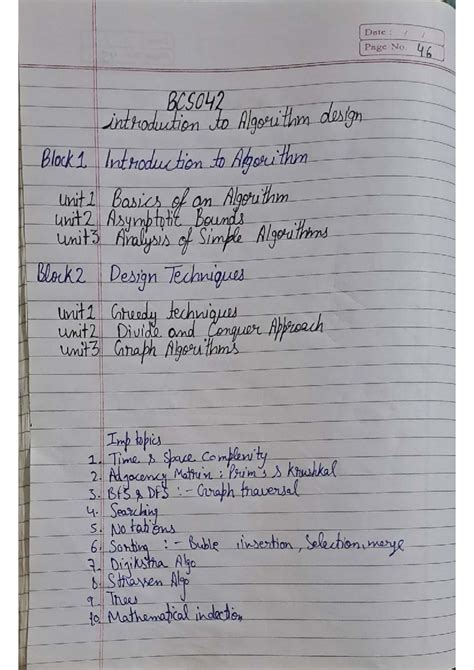 Date : / /
Page No. 46
BCS042
introduction to Algorithm design
Block 1 Introduction to Algorithm
unit 1 Basics of an Algorithm
unit 2 Asymptotic Bounds
unit 3 Analysis of Simple Algorithms
Block 2 Design Techniques
unit 1 Greedy techniques
unit 2 Divide and Conquer Approach
unit 3 Graph Algorithms
Imp topics
1. Time & Space Complenity
2. Adjacency Matrin : Prim's & krushkal
3. BFS & DFS :- Graph traversal
4. Searching
5. Notations
6. Sorting :- Buble, insertion, Selection, merge
7. Dijikstra Algo
8. Strassen Algo
9. Trees
10. Mathematical indection